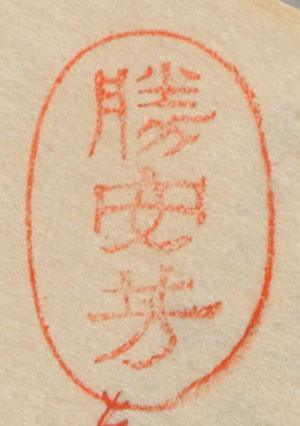 勝安芳